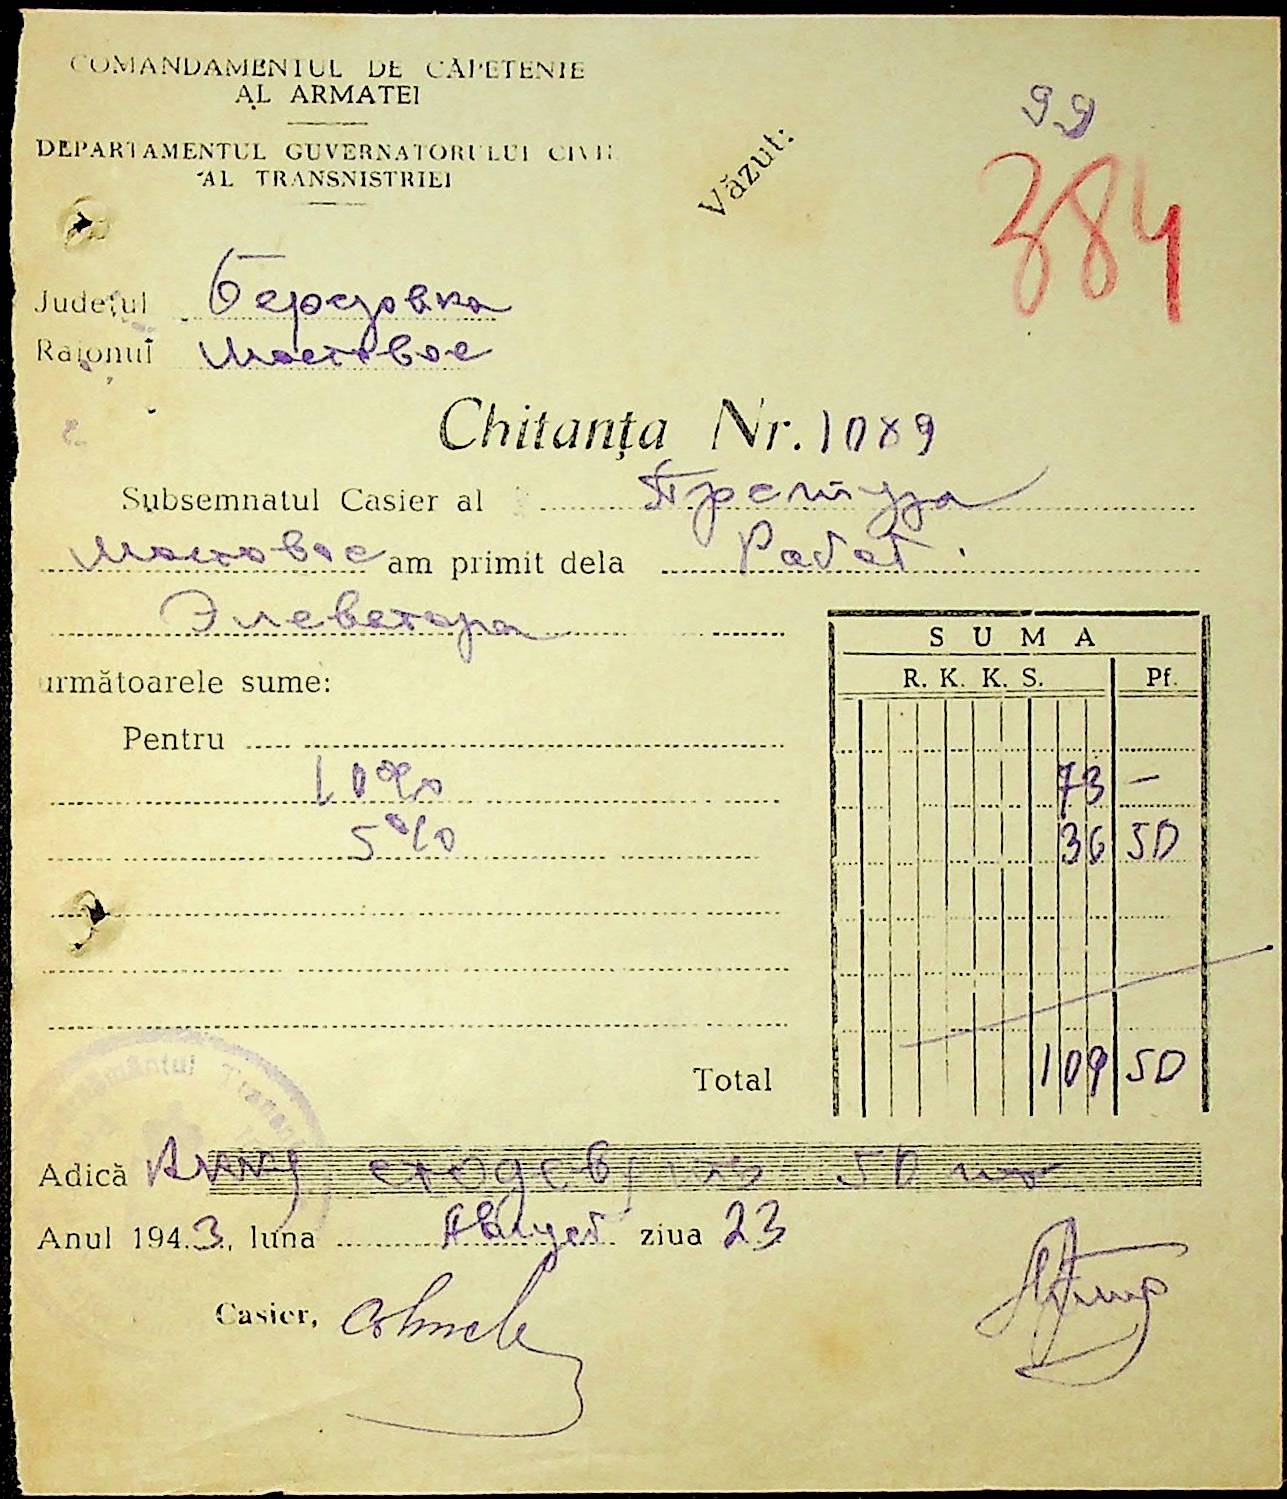 COMANDAMENTUL DE CĂPETENIE
AL ARMATEI
DEPARTAMENTUL GUVERNATORULUI CIVIL
AL TRANSNISTRIEI
Văzut:
99
384
Județul Березовка
Raionul Мостовое
Chitanța Nr. 1089
Subsemnatul Casier al Претура
Мостовое am primit dela Работ.
Элеватора
următoarele sume:
SUMA
R. K. K. S. Pf.
Pentru
10% 73 —
5% 36 50
Total 109 50
Adică 50
Anul 1943, luna Август ziua 23
Casier,